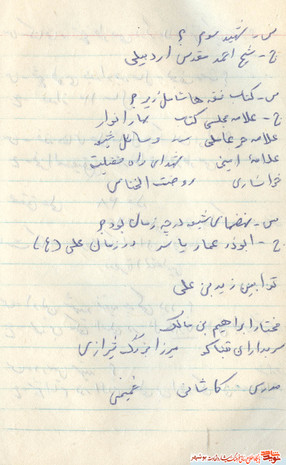 س - شهید سوم ؟
ج - شیخ احمد مقدس اردبیلی
س - کتاب فقها شامل زیر ؟
ج - علامه مجلسی کتاب بحار انوار
علامه حر عاملی وسائل شیعه
علامه امینی شهدای راه فضیلت
خوانساری روضت الجناس
س - نهضهای شیعه در چه زمان بود ؟
ج - ابوذر عمار یاسر در زمان علی (ع)
توابین زید بن علی
مختار ابراهیم بن مالک
سربداران تنباکو میرزا بزرگ شیرازی
مدرس کاشانی خمینی